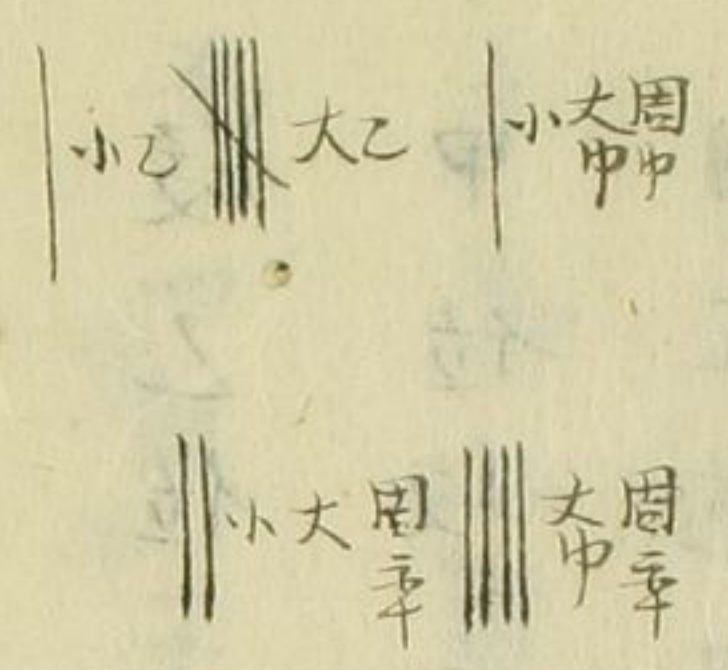 周巾
大巾
小
大乙
小乙
周率
大巾
周率
大
小